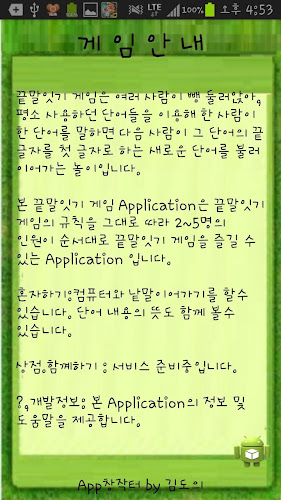 LTE 100% 오후 4:53
게임안내
끝말잇기 게임은 여러 사람이 뺑 둘러앉아,
평소 사용하던 단어들을 이용해 한 사람이
한 단어를 말하면 다음 사람이 그 단어의 끝
글자를 첫 글자로 하는 새로운 단어를 불러
이어가는 놀이입니다.
본 끝말잇기 게임 Application은 끝말잇기
게임의 규칙을 그대로 따라 2~5명의
인원이 순서대로 끝말잇기 게임을 즐길 수
있는 Application 입니다.
혼자하기:컴퓨터와 낱말이어가기를 할수
있습니다. 단어 내용의 뜻도 함께 볼수
있습니다.
상점,함께하기 : 서비스 준비중입니다.
?,개발정보: 본 Application의 정보 및
도움말을 제공합니다.
App창작터 by 김도의